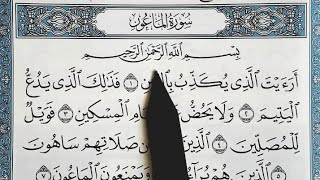 سُورَةُ المَاعُونِ
بِسْمِ اللَّهِ الرَّحْمَٰنِ الرَّحِيمِ
أَرَءَيْتَ الَّذِى يُكَذِّبُ ١ فَذَٰلِكَ الَّذِى يَدُعُّ
الْيَتِيمَ ٢ وَلَا يَحُضُّ الْمِسْكِينِ ٣ فَوَيْلٌ
لِّلْمُصَلِّينَ ٤ الَّذِينَ صَلَاتِهِمْ سَاهُونَ
٥ الَّذِينَ هُمْ وَيَمْنَعُونَ الْمَاعُونَ ٧